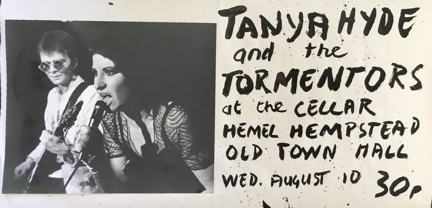 TANYA HYDE
and the
TORMENTORS
at the CELLAR
HEMEL HEMPSTEAD
OLD TOWN HALL
WED. AUGUST 10 30p